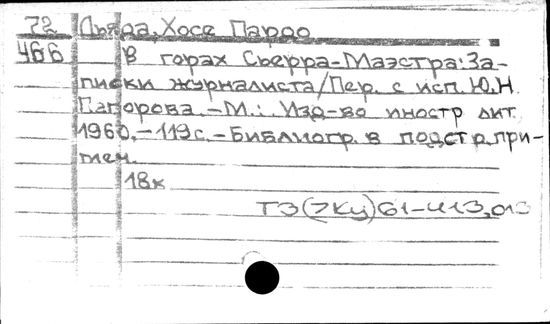 72 Льяда, Хосе Пардо
466 В горах Сьерра-Маэстра: За-
писки журналиста/Пер. с исп. Ю.Н.
Папорова. – М.: Изд-во иностр лит.
1960. – 119с. – Библиогр. в подстр. при-
меч.
18к
Т3(7Ку)61-413,013